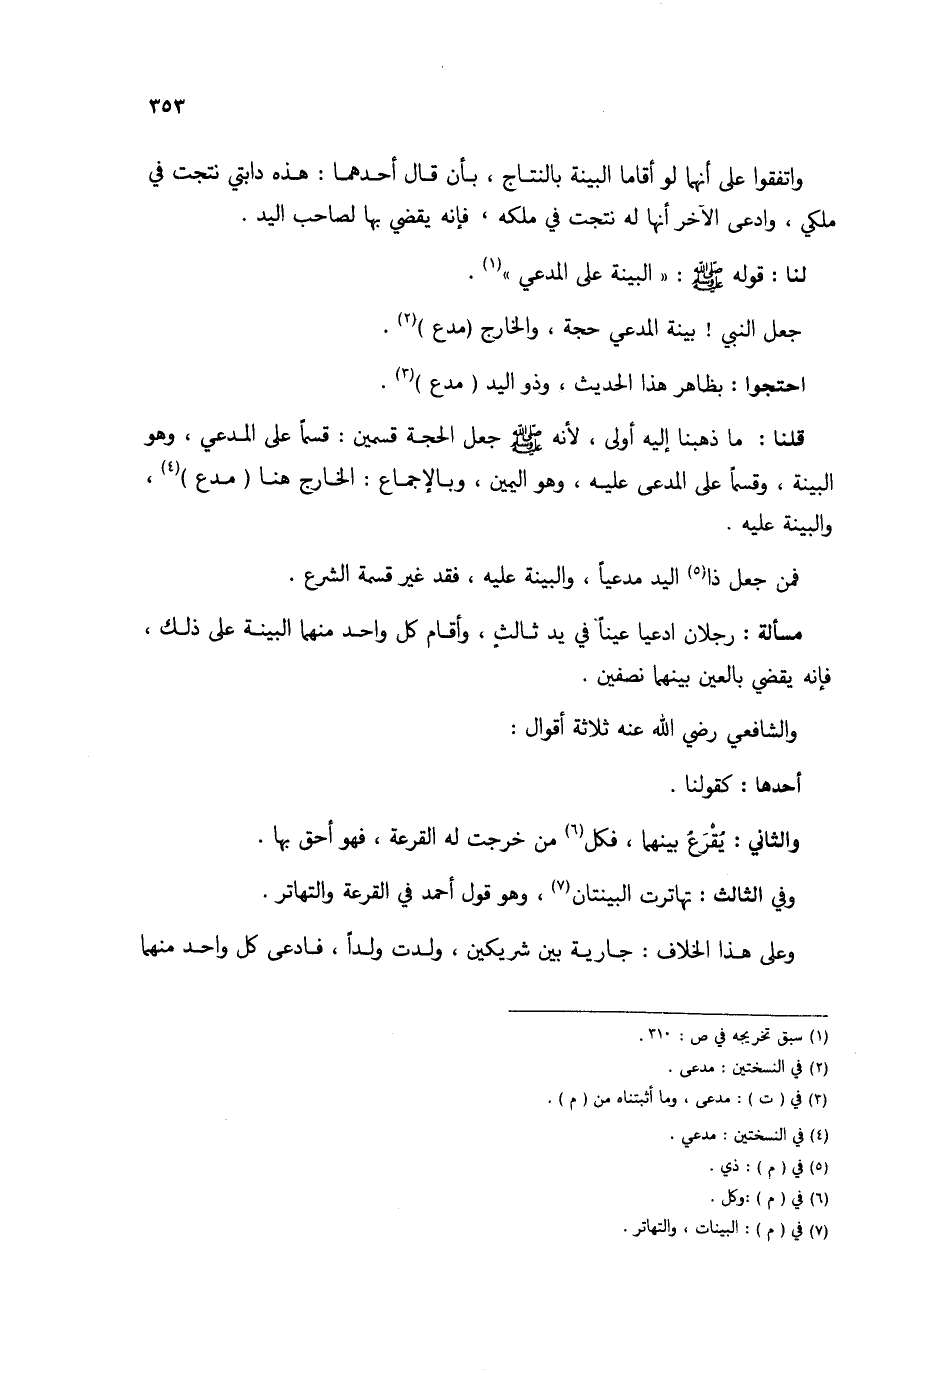 ٣٥٣
واتفقوا على أنهما لو أقاما البينة بالنتاج ، بأن قال أحدهما : هذه دابتي نتجت في
ملكي ، وادعى الآخر أنها له نتجت في ملكه ، فإنه يقضي بها لصاحب اليد .
لنا : قوله ﷺ : « البينة على المدعي »(١) .
جعل النبي ! بينة المدعي حجة ، والخارج (مدع )(٢) .
احتجوا : بظاهر هذا الحديث ، وذو اليد ( مدع )(٣) .
قلنا : ما ذهبنا إليه أولى ، لأنه ﷺ جعل الحجة قسمين : قسماً على المدعي ، وهو
البينة ، وقسماً على المدعى عليه ، وهو اليمين ، وبالإجماع : الخارج هنا ( مدع )(٤) ،
والبينة عليه .
فمن جعل ذا(٥) اليد مدعياً ، والبينة عليه ، فقد غير قسمة الشرع .
مسألة : رجلان ادعيا عيناً في يد ثالثٍ ، وأقام كل واحد منهما البينة على ذلك ،
فإنه يقضي بالعين بينهما نصفين .
والشافعي رضي الله عنه ثلاثة أقوال :
أحدها : كقولنا .
والثاني : يُقْرَعُ بينهما ، فكل(٦) من خرجت له القرعة ، فهو أحق بها .
وفي الثالث : تهاترت البينتان(٧) ، وهو قول أحمد في القرعة والتهاتر .
وعلى هذا الخلاف : جارية بين شريكين ، ولدت ولداً ، فادعى كل واحد منهما
(١) سبق تخريجه في ص : ٣١٠ .
(٢) في النسختين : مدعى .
(٣) في ( ت ) : مدعى ، وما أثبتناه من ( م ) .
(٤) في النسختين : مدعي .
(٥) في ( م ) : ذي .
(٦) في ( م ) :وكل .
(٧) في ( م ) : البينات ، والتهاتر .